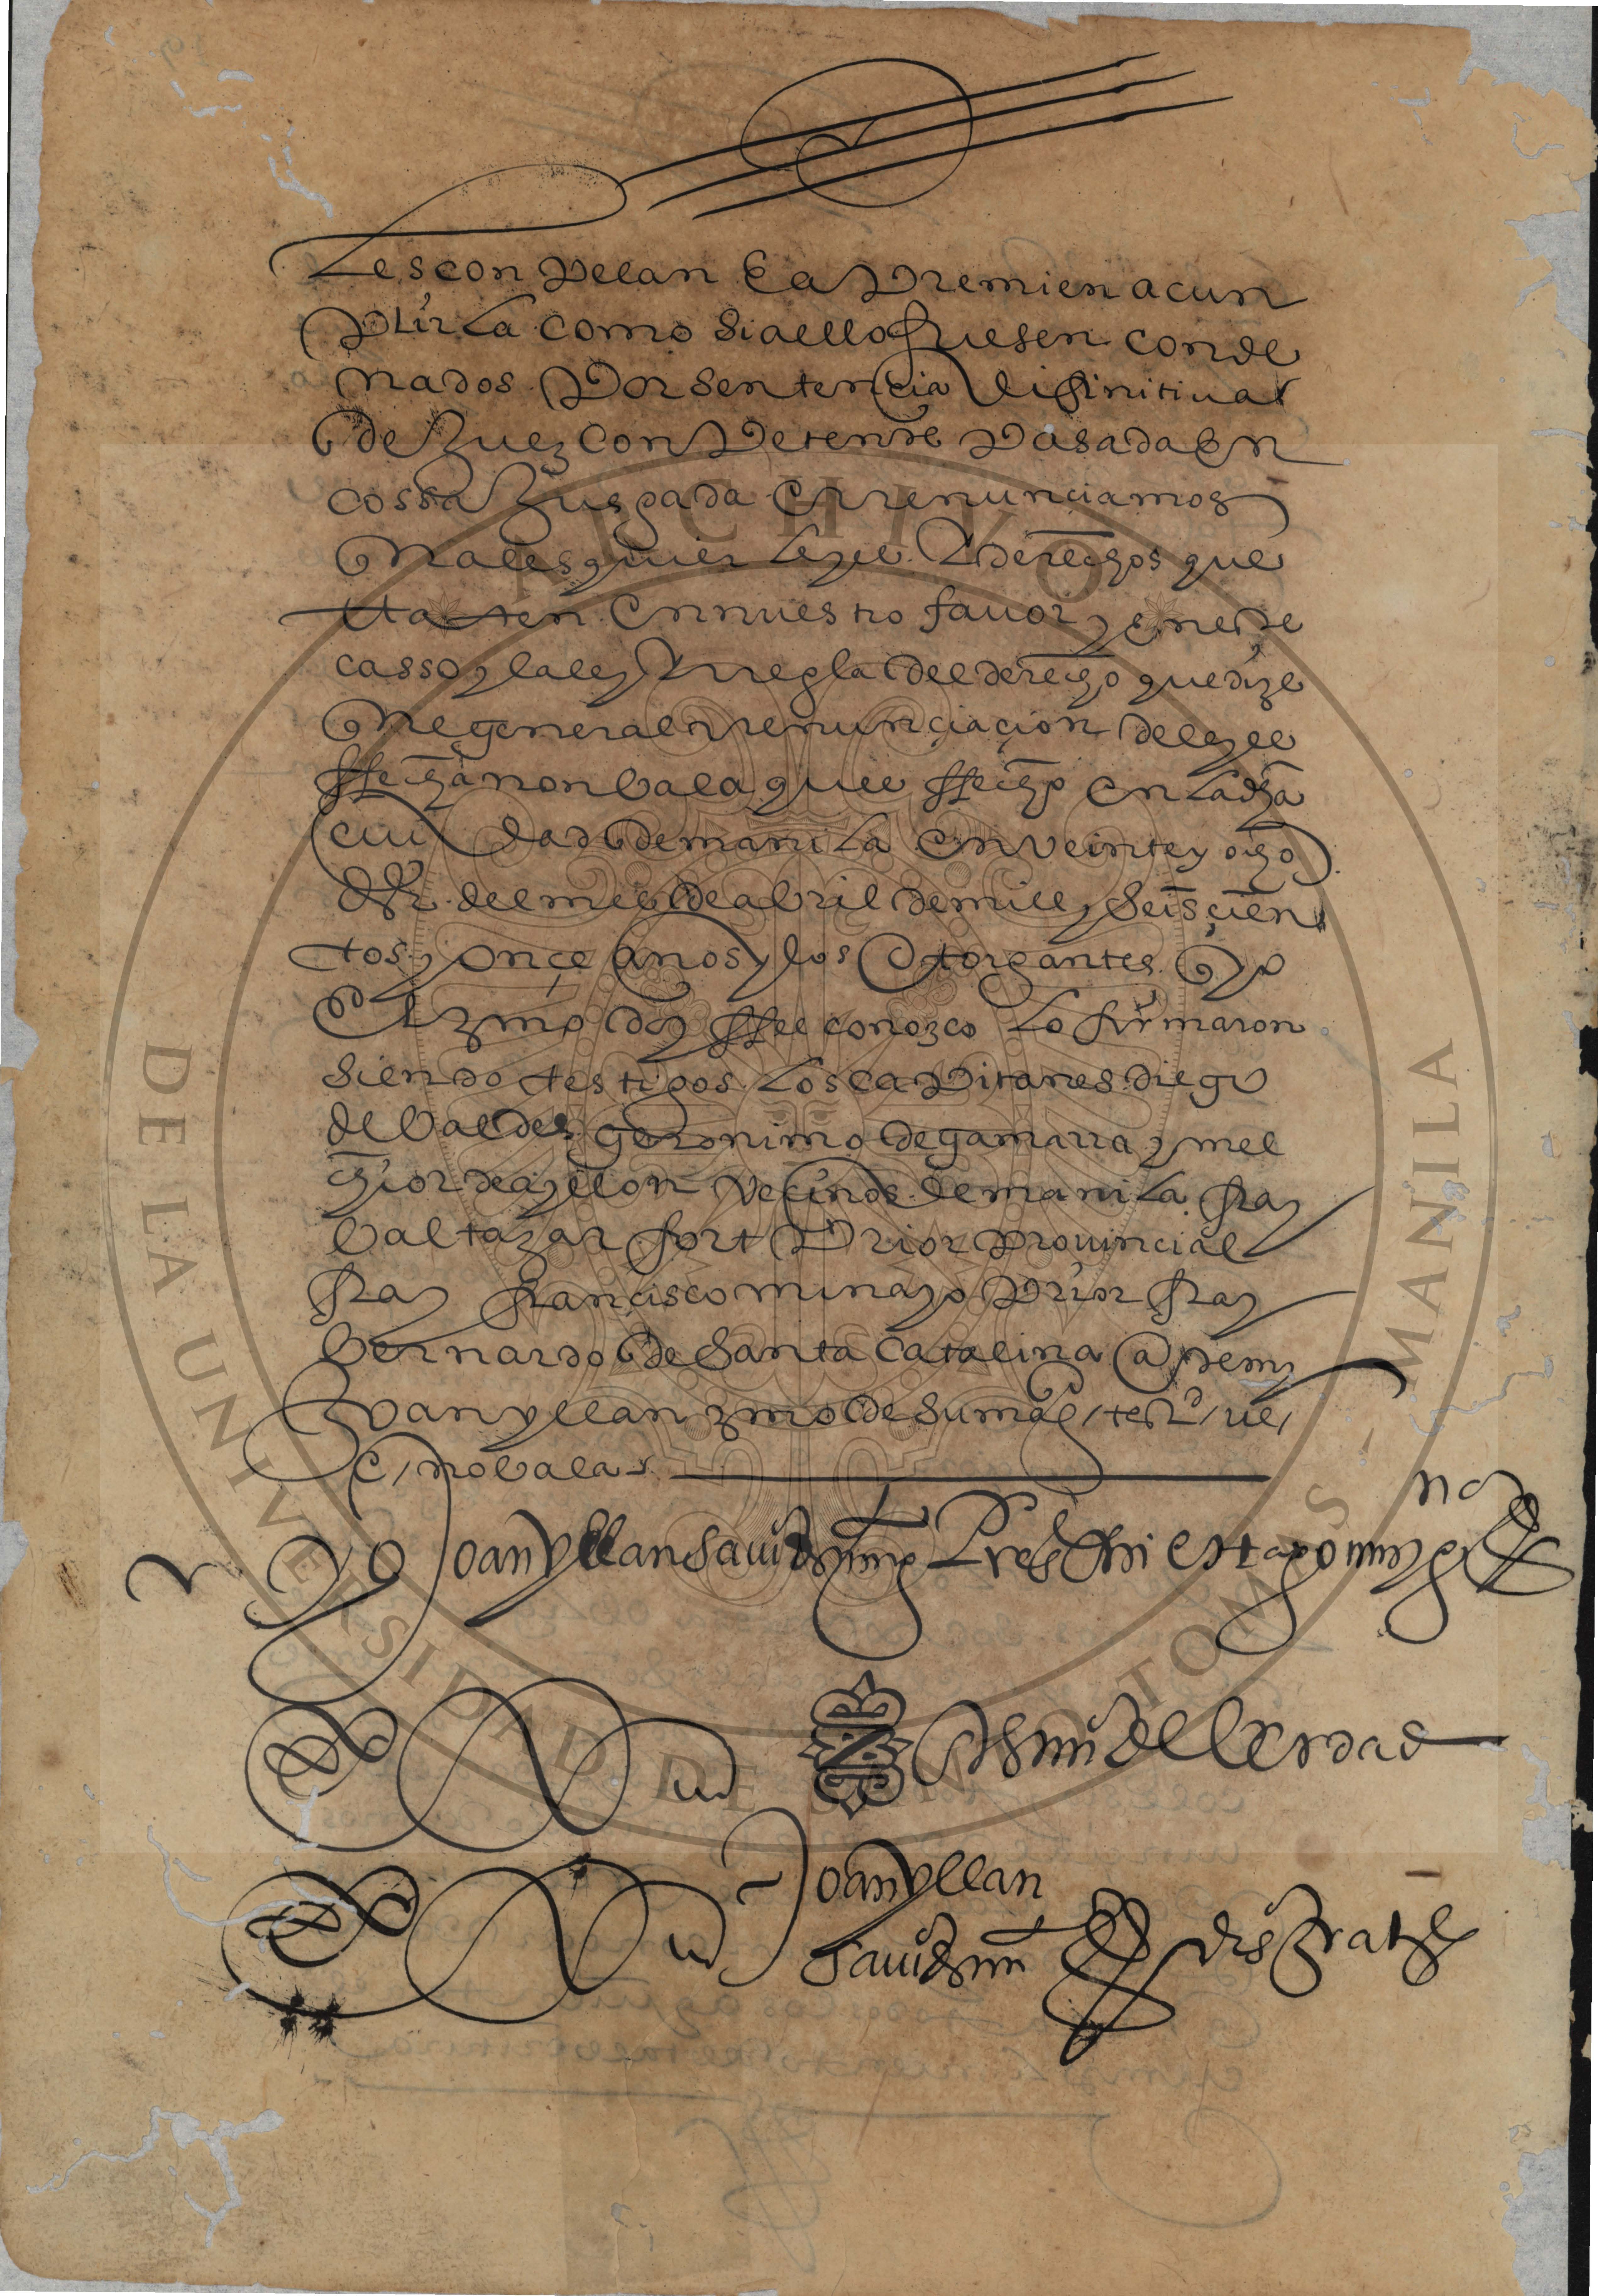 les conpelan e apremien a cun
plir la como si a ello fuesen conde
nados por sentencia difinitiua
de Juez conpetente pasada en
cossa Juzgada e rrenunciamos
qualesquier leyes e derechos que
sean en nuestro fauor y en este
casso y la ley e rregla del derecho que dize
que general rrenunciaçion de leyes
ffecha non bala que es ffecho en la dha
ciudad de manila en veinte y ocho
dias del mes de abril de mill y seisçien
tos y onçe años y los otorgantes q yo
el esno doy ffee conozco lo firmaron
siendo testigos los capitanes diego
de baldes geronimo de gamarra y mel
chior de ayllon veçinos de manila fray
baltazar fort prior prouincial
fray francisco minayo prior fray
bernardo de santa catalina ante my
Joan yllan esno de su magd
e / no bala
yo Joan yllan
en testimo de berdad
Joan yllan
esno
DE LA UNIVERSIDAD DE SANTO TOMAS - MANILA
ARCHIVO